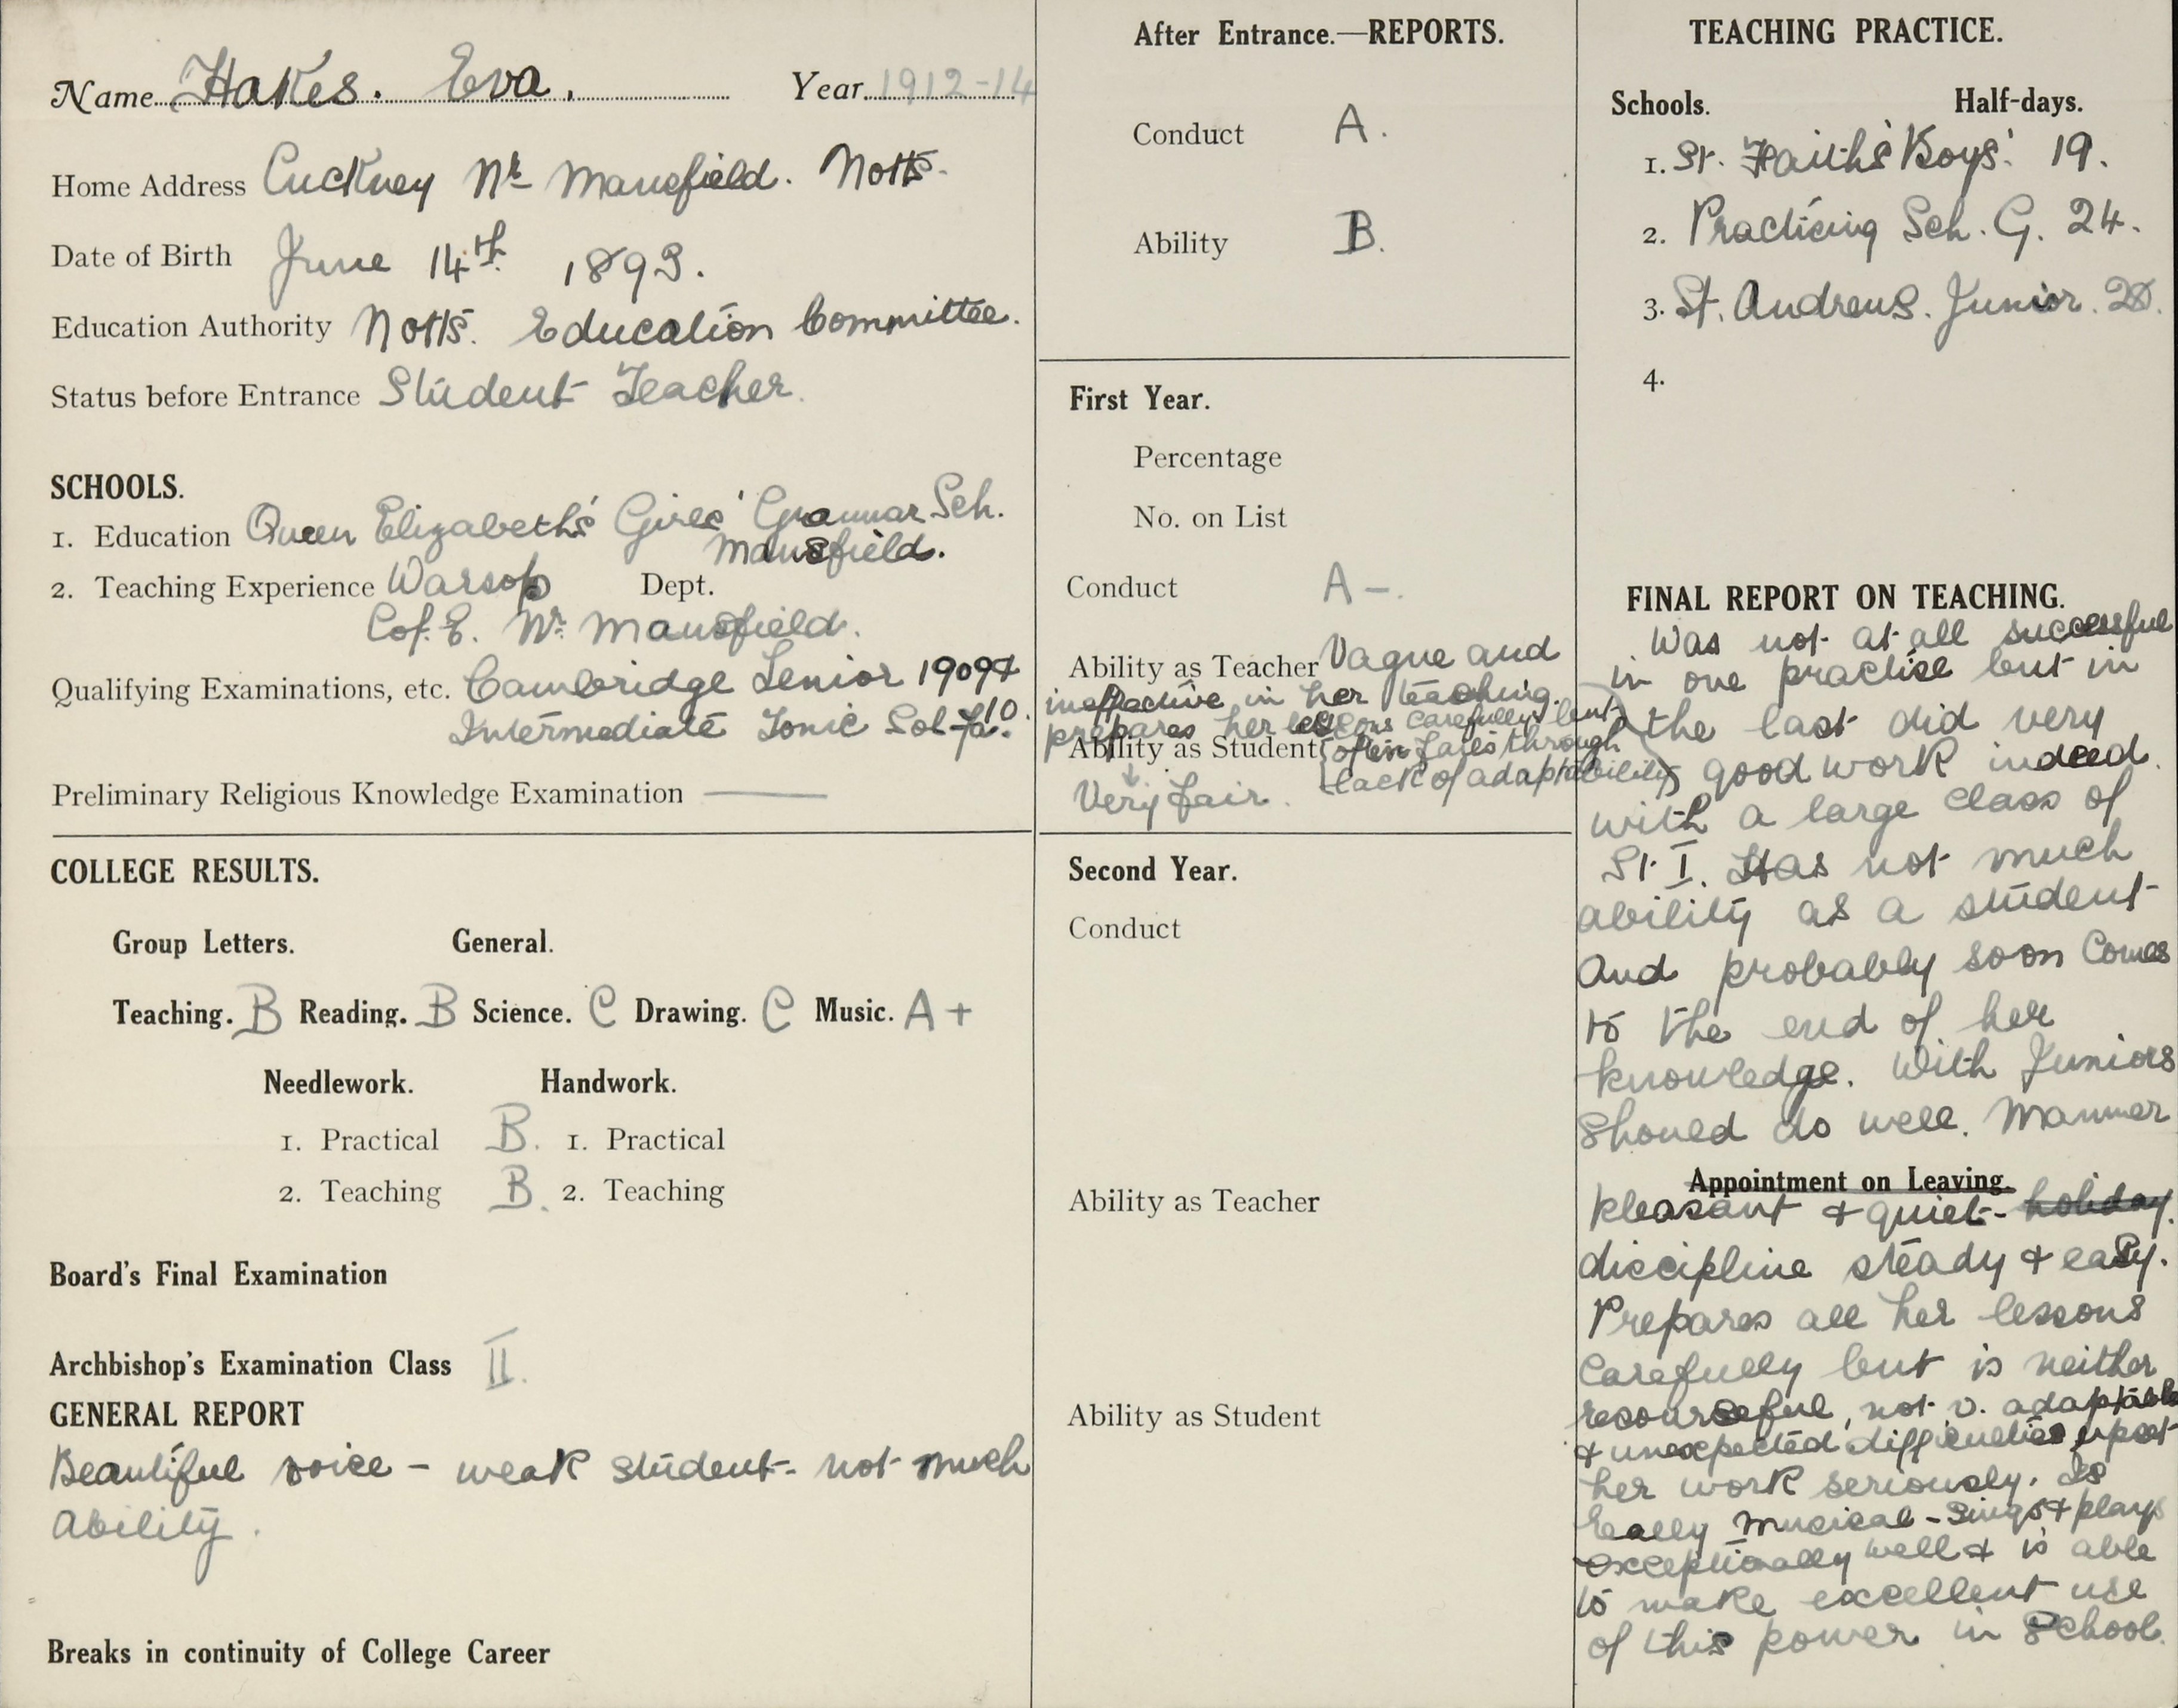 Name Hakes. Eva. Year 1912-14
Home Address Cuckney Nr Mansfield. Notts.
Date of Birth June 14th 1893.
Education Authority Notts. Education Committee.
Status before Entrance Student Teacher.
SCHOOLS.
1. Education Queen Elizabeth's Girls' Grammar Sch.
Mansfield.
2. Teaching Experience Warsop Dept.
C of. E. Nr. Mansfield.
Qualifying Examinations, etc. Cambridge Senior 1909 +
10.
Intermediate Tonic Sol-fa.
Preliminary Religious Knowledge Examination —
COLLEGE RESULTS.
Group Letters. General.
Teaching. B Reading. B Science. C Drawing. C Music. A+
Needlework. Handwork.
1. Practical B. 1. Practical
2. Teaching B. 2. Teaching
Board's Final Examination
Archbishop's Examination Class II.
GENERAL REPORT
Beautiful voice - weak student - not much
ability.
Breaks in continuity of College Career
After Entrance.—REPORTS.
Conduct A.
Ability B.
First Year.
Percentage
No. on List
Conduct A-.
Ability as Teacher Vague and
ineffective in her teaching.
prepares her lessons carefully but
Ability as Student often fails through
lack of adaptability
Very fair.
Second Year.
Conduct
Ability as Teacher
Ability as Student
TEACHING PRACTICE.
Schools. Half-days.
1. St. Faith's Boys'. 19.
2. Practicing Sch. G. 24.
3. St. Andrews. Junior. 20.
4.
FINAL REPORT ON TEACHING.
Was not at all successful
in one practise but in
the last did very
good work indeed.
with a large class of
St I. Has not much
ability as a student
and probably soon comes
to the end of her
knowledge. With Juniors
should do well. Manner
Appointment on Leaving.
pleasant & quiet - holiday.
discipline steady & easy.
Prepares all her lessons
carefully but is neither
resourceful, not v. adaptable
& unexpected difficulties upset
her work seriously. Is
really musical - Sings & plays
exceptionally well & is able
to make excellent use
of this power in School.